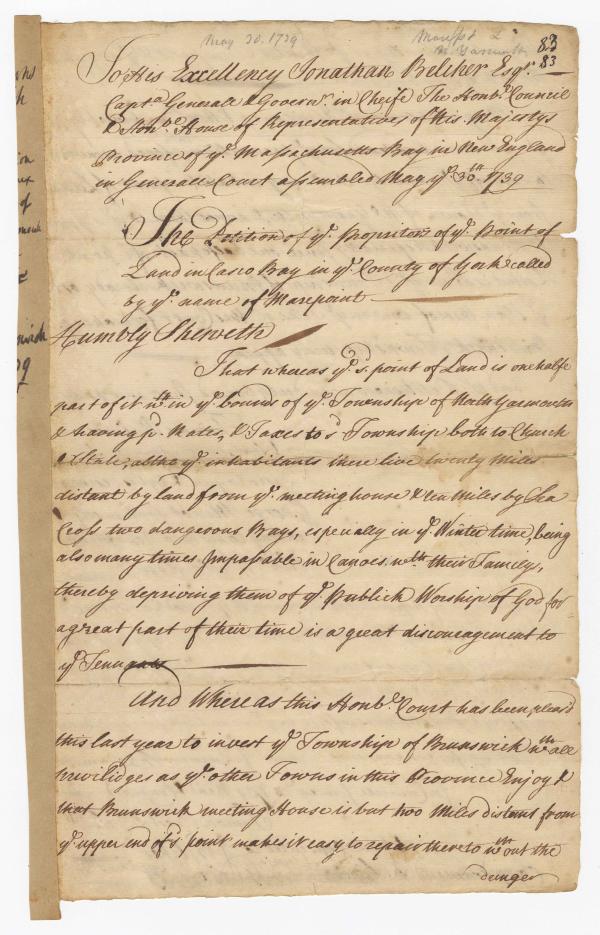 May 30. 1739
83
83
To His Excellency Jonathan Belcher Esqr.
Capta. Generall & Governr. in Cheife The Honble. Council
& Honble. House of Representatives of His Majestys
Province of ye. Massachusetts Bay in New England
in Generall Court assembled May ye. 30th. 1739
The Petition of ye. Propritors of ye. Point of
Land in Casco Bay in ye. County of York called
by ye. name of Marepoint
Humbly Sheweth
That whereas ye. sd. point of Land is one halfe
part of it wth in ye. bounds of ye. Township of North Yarmouth
& having pd. Rates, & Taxes to sd Township both to Church
& State, altho ye. inhabitants there live twenty Miles
distant by land from ye. meeting house & ten Miles by Sea
Cross two dangerous Bays, especially in ye. Winter time, being
also many times Impassable in Canoes wth their Family,
thereby depriving them of ye. Publick Worship of God for
a great part of their time is a great discouragement to
ye. Tennants
And Whereas this Honble. Court has been pleas'd
this last year to invest ye. Township of Brunswick wth all
priviledges as ye. other Towns in this Province Enjoy &
that Brunswick meeting House is but two Miles distant from
ye. upper end of sd. point makes it easy to repair thereto wth out the
danger